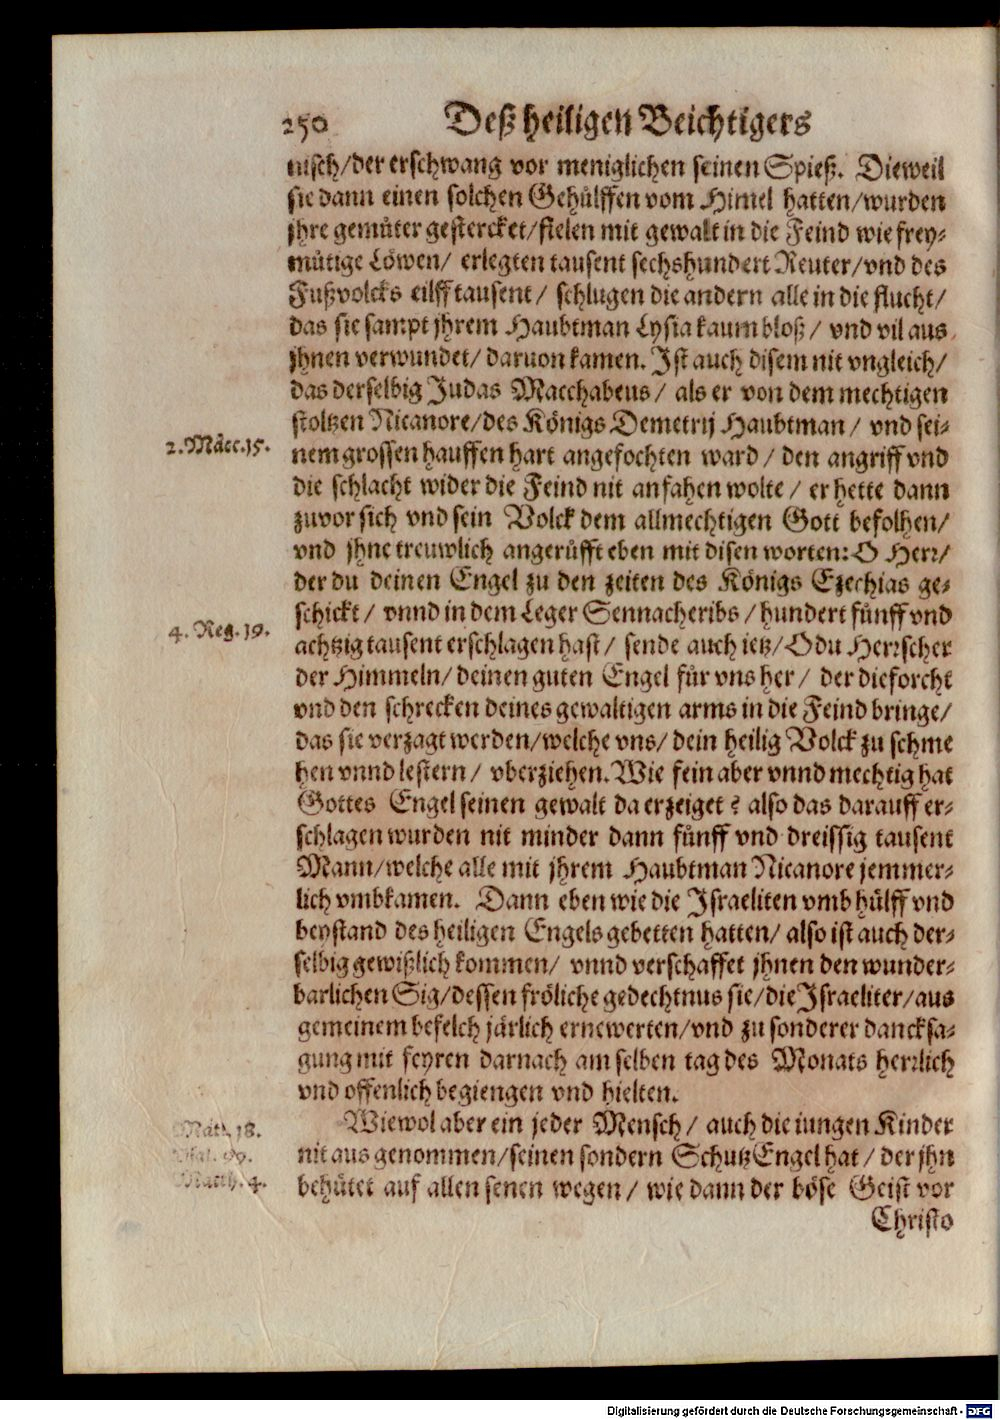 250 Deß heiligen Beichtigers
nisch/der erschwang vor meniglichen seinen Spieß. Dieweil
sie dann einen solchen Gehülffen vom Himel hatten/wurden
jhre gemüter gestercket/fielen mit gewalt in die Feind wie frey-
mütige Löwen/ erlegten tausent sechshundert Reuter/vnd des
Fußvolcks eilff tausent/ schlugen die andern alle in die flucht/
das sie sampt jhrem Haubtman Lysia kaum bloß/ vnd vil aus
jhnen verwundet/ daruon kamen. Ist auch disem nit vngleich/
das derselbig Judas Macchabeus/ als er von dem mechtigen
stoltzen Nicanore/des Königs Demetrij Haubtman/ vnd sei-
2. Macc. 15. nem grossen hauffen hart angefochten ward/ den angriff vnd
die schlacht wider die Feind nit anfahen wolte/ er hette dann
zuvor sich vnd sein Volck dem allmechtigen Gott befolhen/
vnd jhne treuwlich angerüfft eben mit disen worten: O Herr/
der du deinen Engel zu den zeiten des Königs Ezechias ge-
schickt/ vnnd in dem Leger Sennacheribs/ hundert fünff vnd
4. Reg. 19. achtzig tausent erschlagen hast/ sende auch ietz/O du Herrscher
der Himmeln/ deinen guten Engel für vns her/ der die forcht
vnd den schrecken deines gewaltigen arms in die Feind bringe/
das sie verzagt werden/welche vns/ dein heilig Volck zu schme
hen vnnd lestern/ vberziehen. Wie fein aber vnnd mechtig hat
Gottes Engel seinen gewalt da erzeiget? also das darauff er-
schlagen wurden nit minder dann fünff vnd dreissig tausent
Mann/welche alle mit jhrem Haubtman Nicanore jemmer-
lich vmbkamen. Dann eben wie die Israeliten vmb hülff vnd
beystand des heiligen Engels gebetten hatten/ also ist auch der-
selbig gewißlich kommen/ vnnd verschaffet jhnen den wunder-
barlichen Sig/dessen fröliche gedechtnus sie/die Israeliter/aus
gemeinem befelch järlich ernewerten/vnd zu sonderer dancksa-
gung mit feyren darnach am selben tag des Monats herrlich
vnd offenlich begiengen vnd hielten.
Math. 18. Wiewol aber ein jeder Mensch/ auch die iungen Kinder
nit ausgenommen/seinen sondern SchutzEngel hat/ der jhn
Matth. 4. behütet auf allen senen wegen/ wie dann der böse Geist vor
Christo
Digitalisierung gefördert durch die Deutsche Forschungsgemeinschaft - DFG